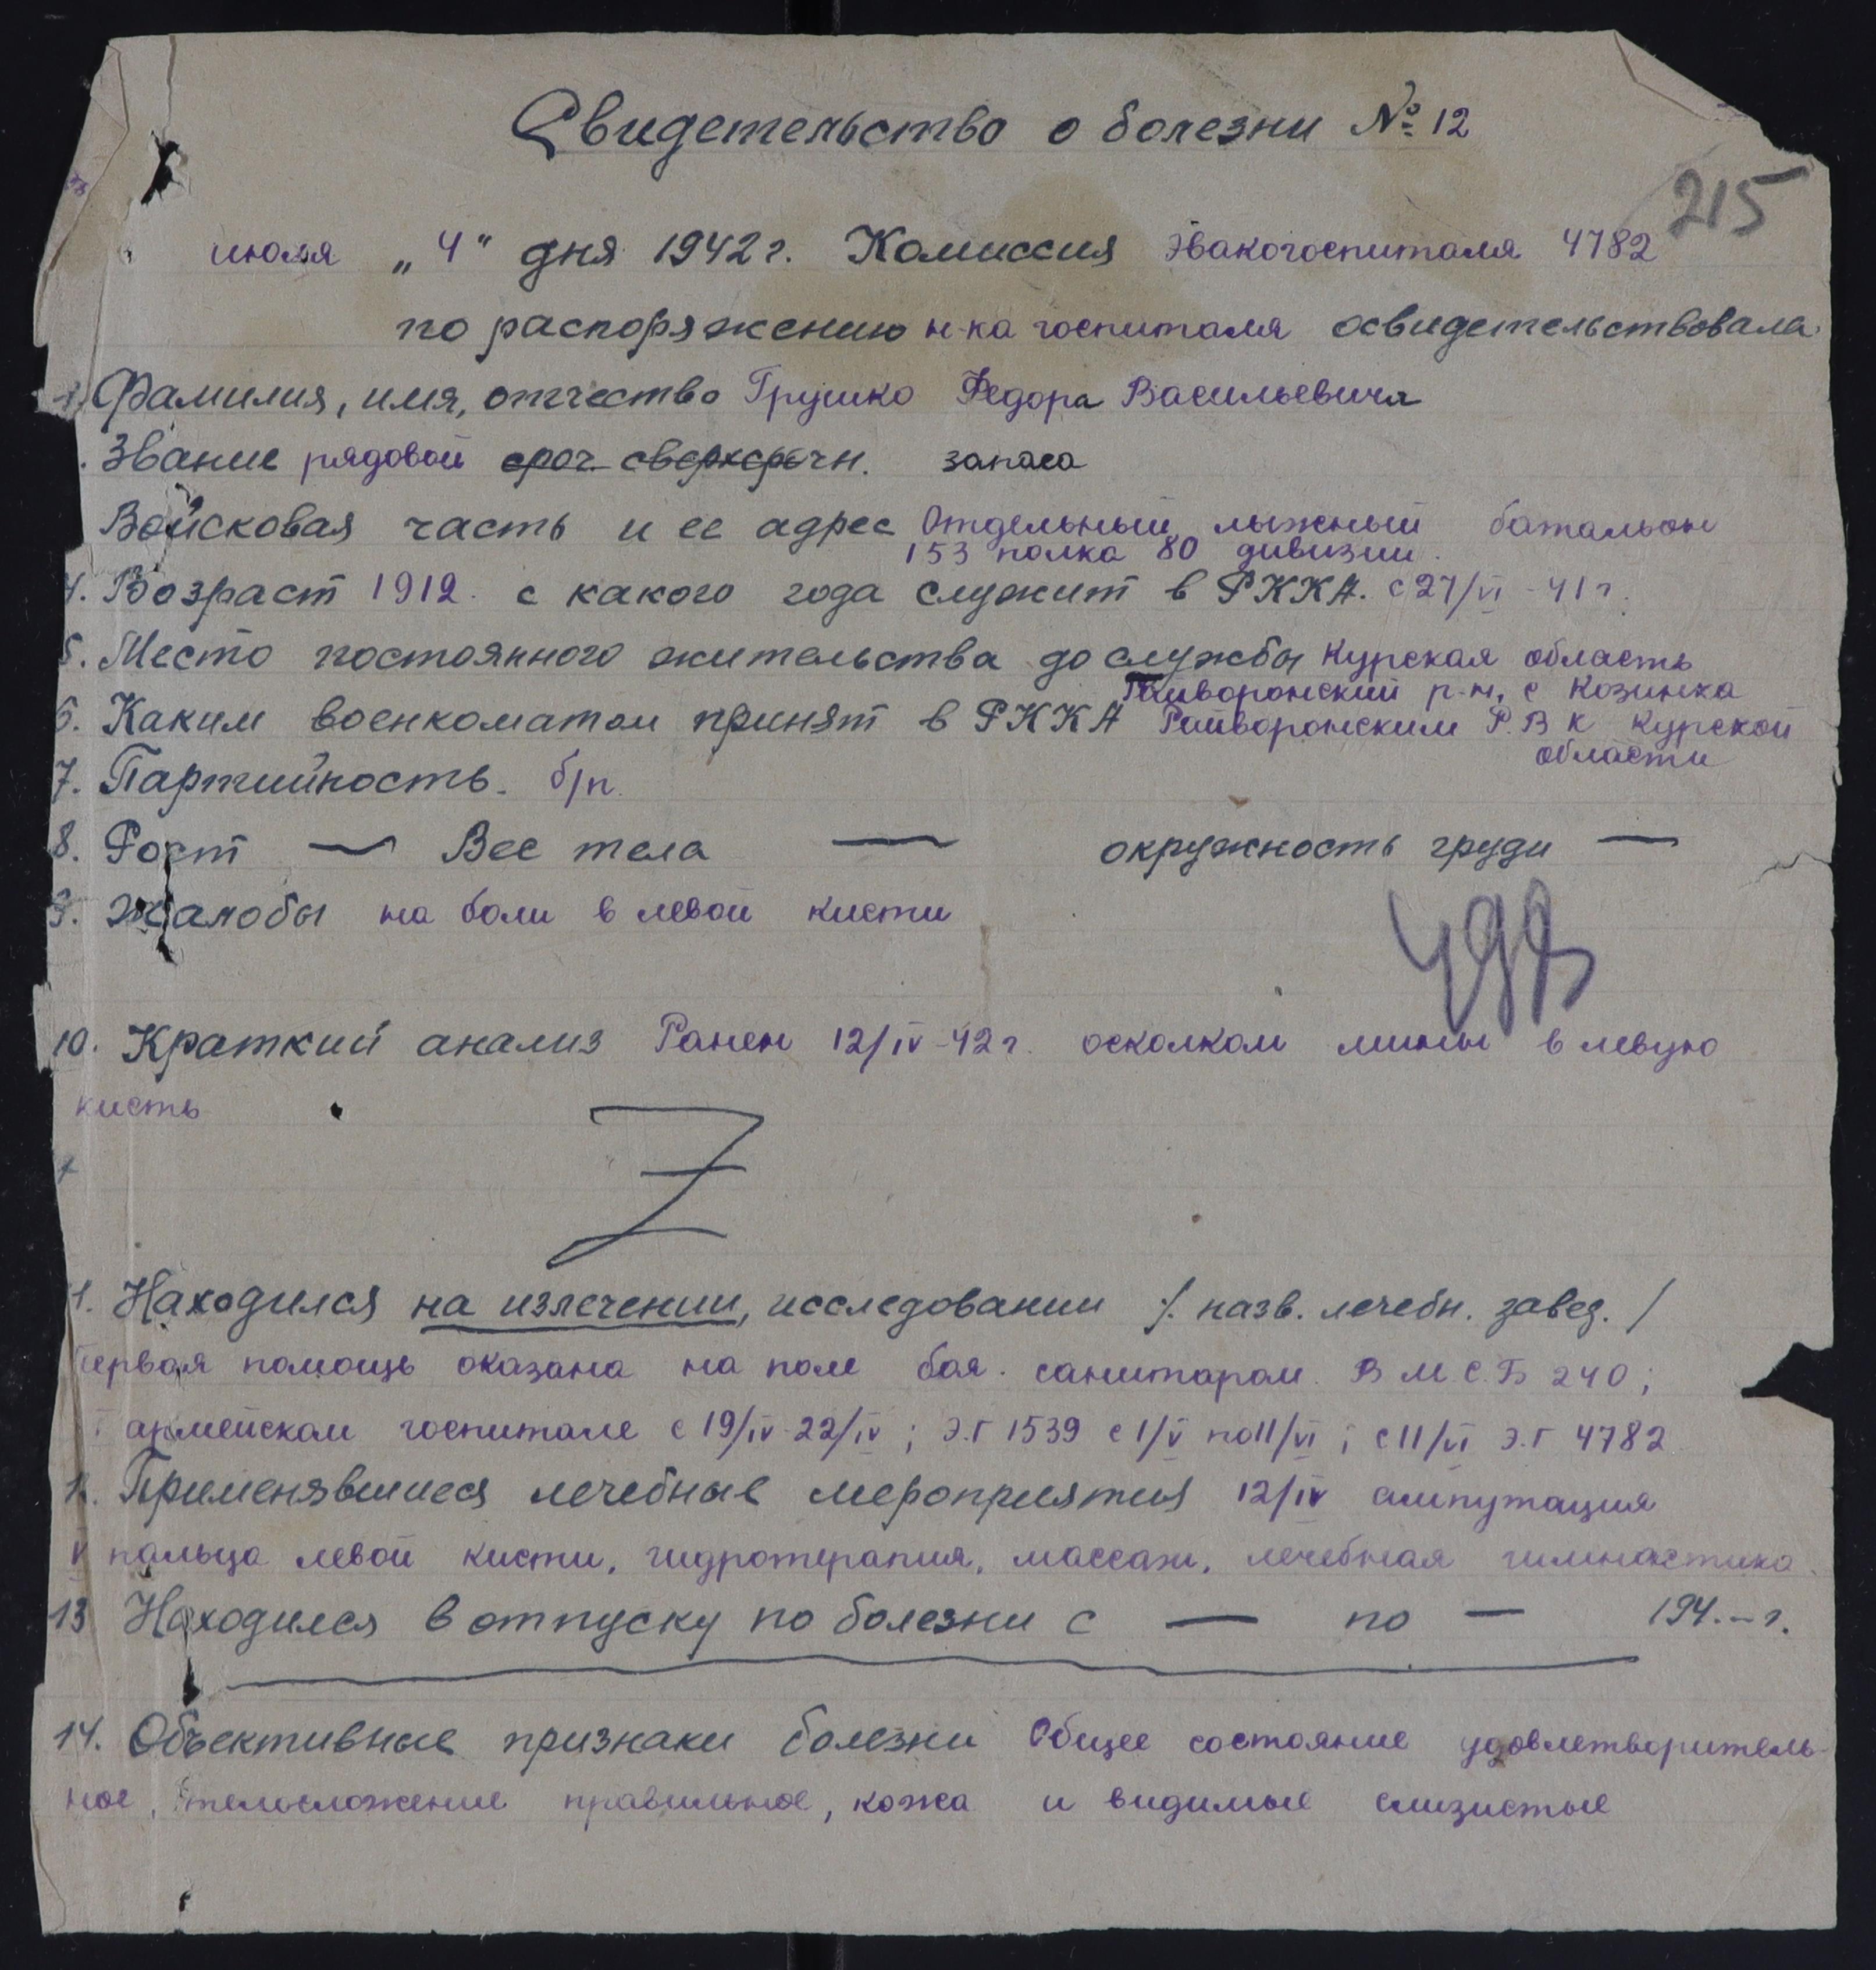 Свидетельство о болезни № 12
215
июля „4“ дня 1942 г. Комиссия эвакогоспиталя 4782
по распоряжению н-ка госпиталя освидетельствовала
1. Фамилия, имя, отчество Грушко Федора Васильевича
. Звание рядовой сроч. сверхсрочн. запаса
Войсковая часть и ее адрес Отдельный лыжный батальон
153 полка 80 дивизии.
4. Возраст 1912. с какого года служит в РККА. с 27/VI-41 г.
5. Место постоянного жительства до службы Курская область
Райворонский р-н, с Козинка
6. Каким военкоматом принят в РККА Райворонским Р.В К Курской
области
7. Партийность. б/п.
8. Рост — Вес тела — окружность груди —
9. Жалобы на боли в левой кисти
10. Краткий анализ Ранен 12/IV-42 г. осколком мины в левую
кисть
Z
1. Находился на излечении, исследовании /. назв. лечебн. завед. /
Первая помощь оказана на поле боя. санитаром. В М.С.Б 240;
армейском госпитале с 19/IV-22/IV; Э.Г 1539 с 1/V по 11/VI; с 11/VI Э.Г 4782
1. Применявшиеся лечебные мероприятия 12/IV ампутация
V пальца левой кисти, гидротерапия, массаж, лечебная гимнастика.
13 Находился в отпуску по болезни с — по — 194.-г.
14. Объективные признаки болезни Общее состояние удовлетворитель-
ное, телосложение правильное, кожа и видимые слизистые